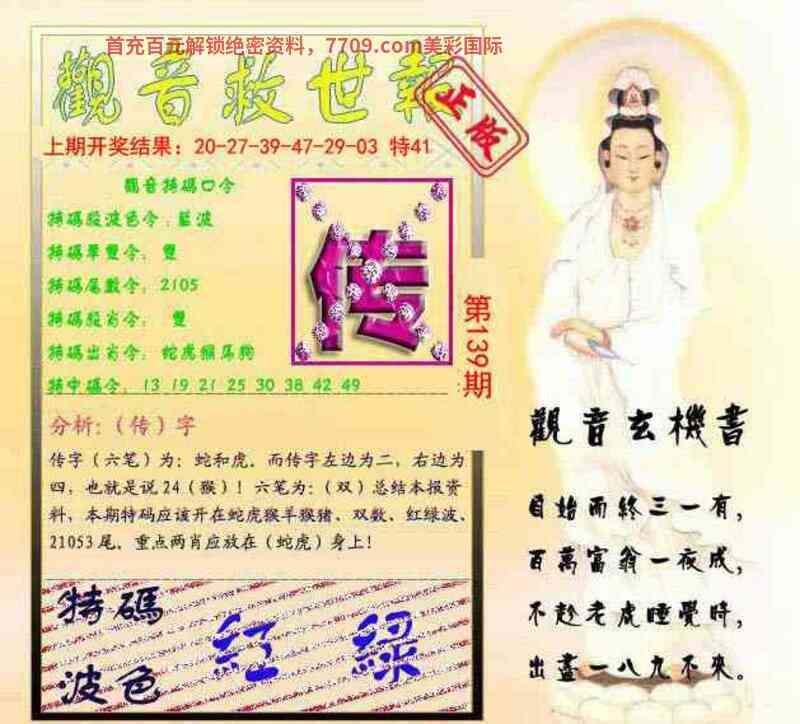 首充百元解锁绝密资料，7709.com美彩国际
觀音救世報
正版
上期开奖结果：20-27-39-47-29-03 特41
觀音特碼口令
特碼段波色令：藍波
特碼單雙令：雙
特碼尾數令：2105
特碼段肖令： 雙
特碼出肖令：蛇虎猴馬狗
特中碼令：13 19 21 25 30 38 42 49
传
第139期
分析：（传）字
传字（六笔）为：蛇和虎．而传字左边为二，右边为
四，也就是说24（猴）！六笔为：（双）总结本报资
料，本期特码应该开在蛇虎猴羊猴猪、双数、红绿波、
21053尾．重点两肖应放在（蛇虎）身上！
特碼
波色
紅 綠
觀音玄機書
目始而終三一有，
百萬富翁一夜成，
不趁老虎睡覺時，
出盡一八九不來。